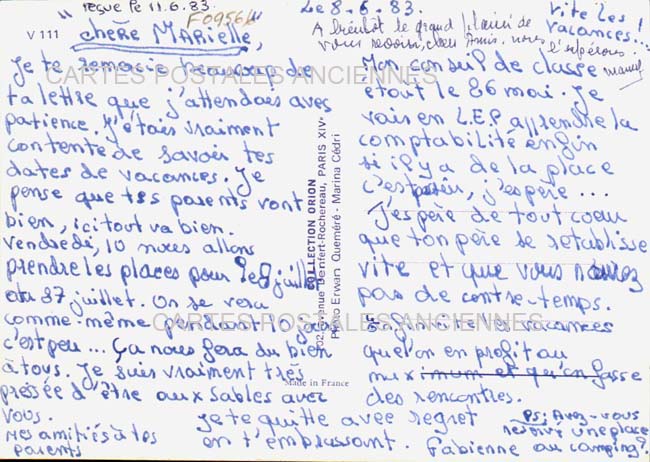 reçue le 11.6.83.
F0956
V 111
"chère Marielle,"
Je te remercie beaucoup de
ta lettre que j'attendais avec
patience. J'étais vraiment
contente de savoir tes
dates de vacances. Je
pense que tes parents vont
bien, ici tout va bien.
Vendredi, 10 nous allons
prendre les places pour le 8 juillet
au 27 juillet. On se verra
comme-même pendant 10 jours
c'est peu... Ça nous fera du bien
à tous. Je suis vraiment très
pressée d'être aux Sables avec
vous.
mes amitiés à tes
parents
CARTES POSTALES ANCIENNES
CARTES POSTALES ANCIENNES
COLLECTION ORION
202, avenue Denfert-Rochereau, PARIS XIV
Photo Erwan Quéméré - Marina Cédri
Made in France
Le 8.6.83.
Vite les
vacances!...
A bientôt le grand plaisir de
vous revoir, chers Amis. nous l'espérons
Mon conseil de classe
était le 26 mai. Je
vais en L.E.P apprendre la
comptabilité enfin
si il y a de la place
c'est pas sûr, j'espère...
J'espère de tout coeur
que ton père se rétablisse
vite et que vous n'aurez
pas de contre-temps.
Enfin vite les vacances
que l'on en profit au
maximum et qu'on fasse
des rencontres.
Je te quitte avec regret
en t'embrassant. Fabienne
PS: Avez-vous
réservé une place
au camping?